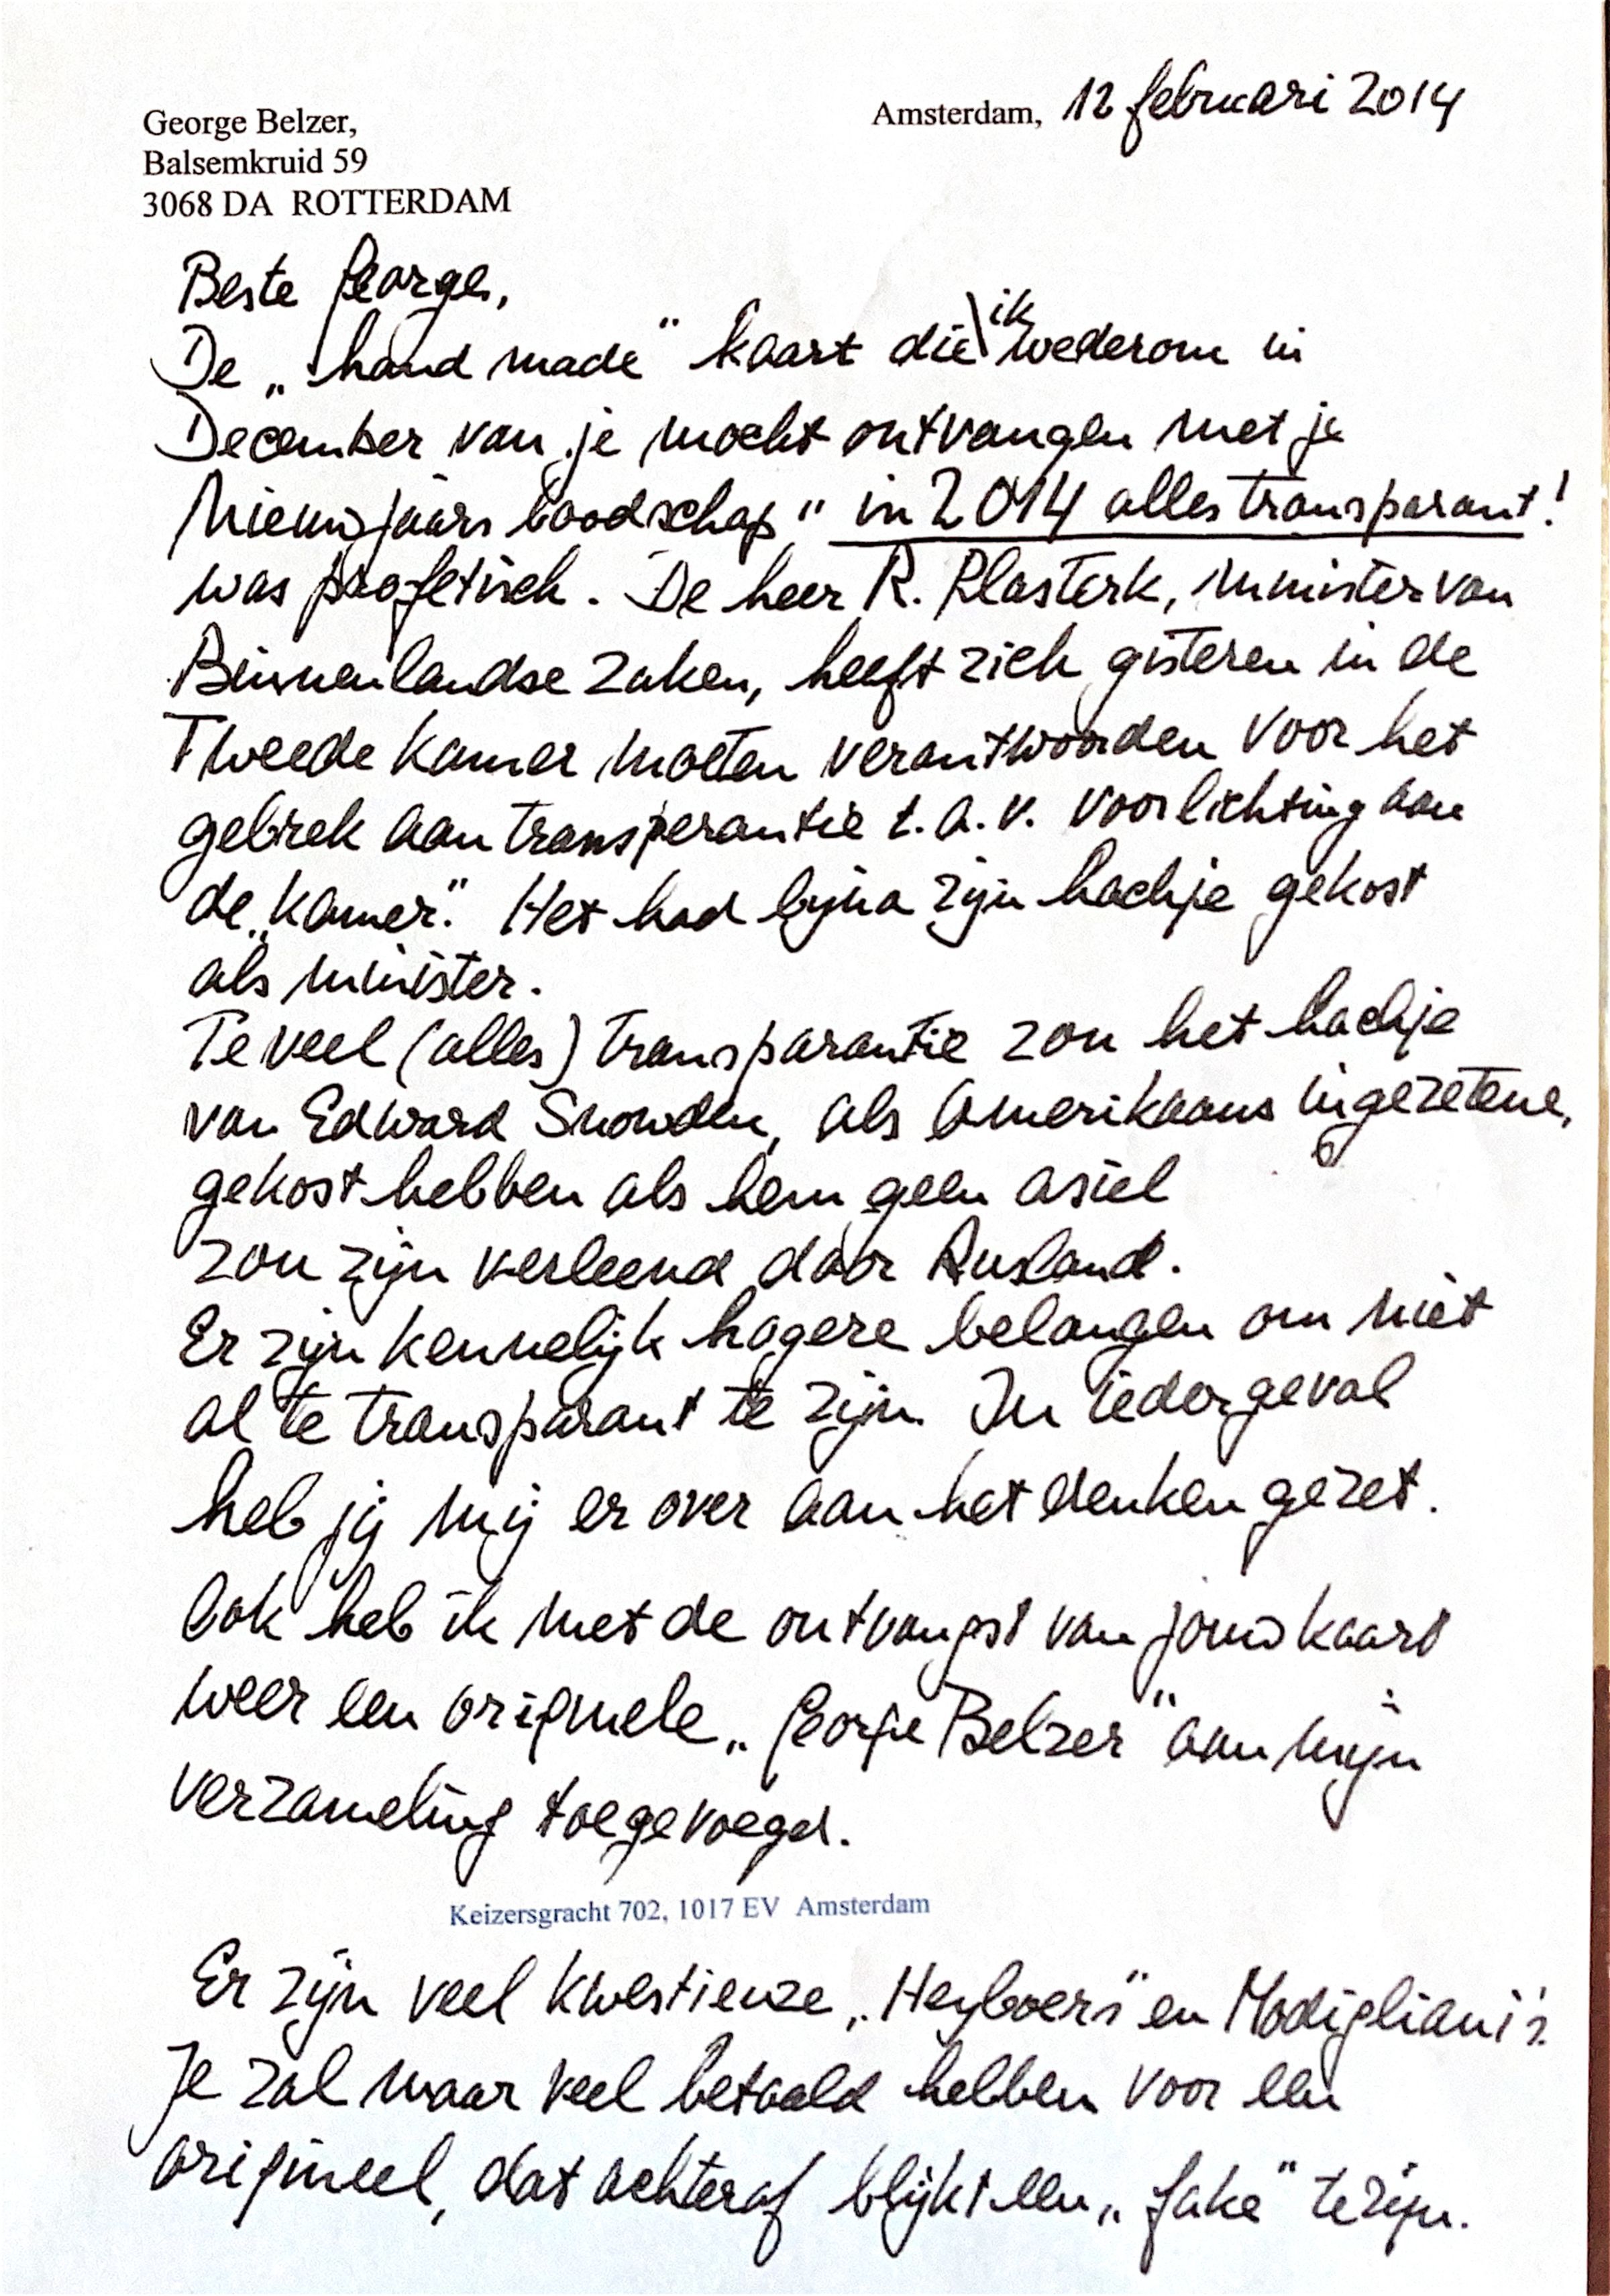 George Belzer,
Balsemkruid 59
3068 DA ROTTERDAM
Amsterdam, 12 februari 2014
Beste George,
De „hand made" kaart die ik wederom in
December van je mocht ontvangen met je
Nieuwjaars boodschap " in 2014 alles transparant!
was profetisch. De heer R. Plasterk, minister van
Binnenlandse Zaken, heeft zich gisteren in de
Tweede Kamer moeten verantwoorden voor het
gebrek aan transperantie t.a.v. voorlichting aan
de „Kamer". Het had bijna zijn hachje gekost
als minister.
Te veel (alles) transparantie zou het hachje
van Edward Snowden, als Amerikaans ingezetene,
gekost hebben als hem geen asiel
zou zijn verleend door Rusland.
Er zijn kennelijk hogere belangen om niet
al te transparant te zijn. In ieder geval
heb jij mij er over aan het denken gezet.
Ook heb ik met de ontvangst van jouw kaart
weer een originele „George Belzer" aan mijn
verzameling toegevoegd.
Keizersgracht 702, 1017 EV Amsterdam
Er zijn veel kwestieuze „Heyboers" en Modigliani's.
Je zal maar veel betaald hebben voor een
origineel, dat achteraf blijkt een „fake" te zijn.